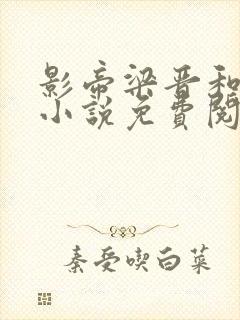 影帝梁晋和
小說免費閱
秦受喫白菜